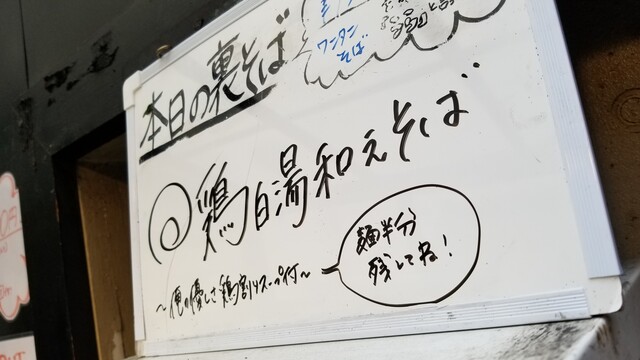 本日の裏そば
ワンタン
そば
@鶏白湯和えそば
〜俺の優しさ鶏割りスープ付〜
麺半分
残してね!